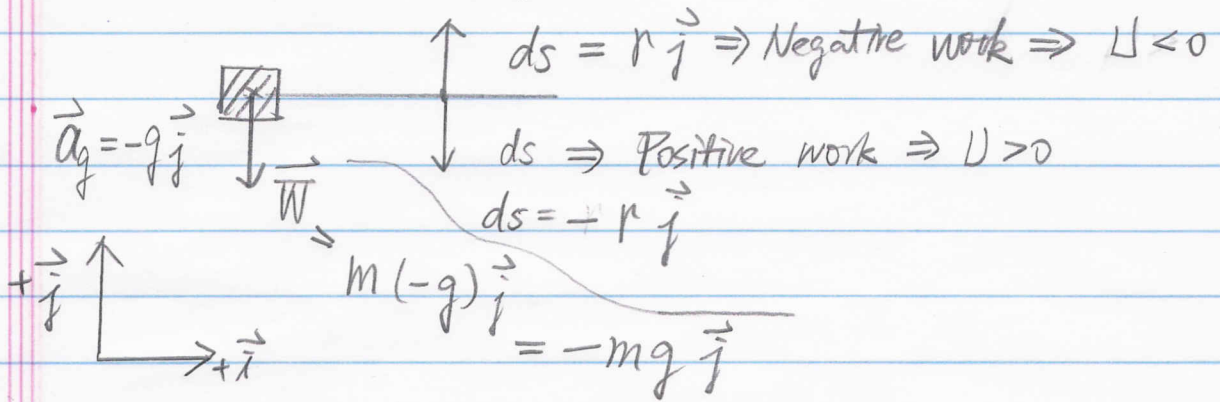 ds = r j⃗ ⇒ Negative work ⇒ U < 0
a⃗g = -g j⃗
W⃗
ds ⇒ Positive work ⇒ U > 0
ds = - r j⃗
m (-g) j⃗
= - mg j⃗
+ j⃗
+ i⃗